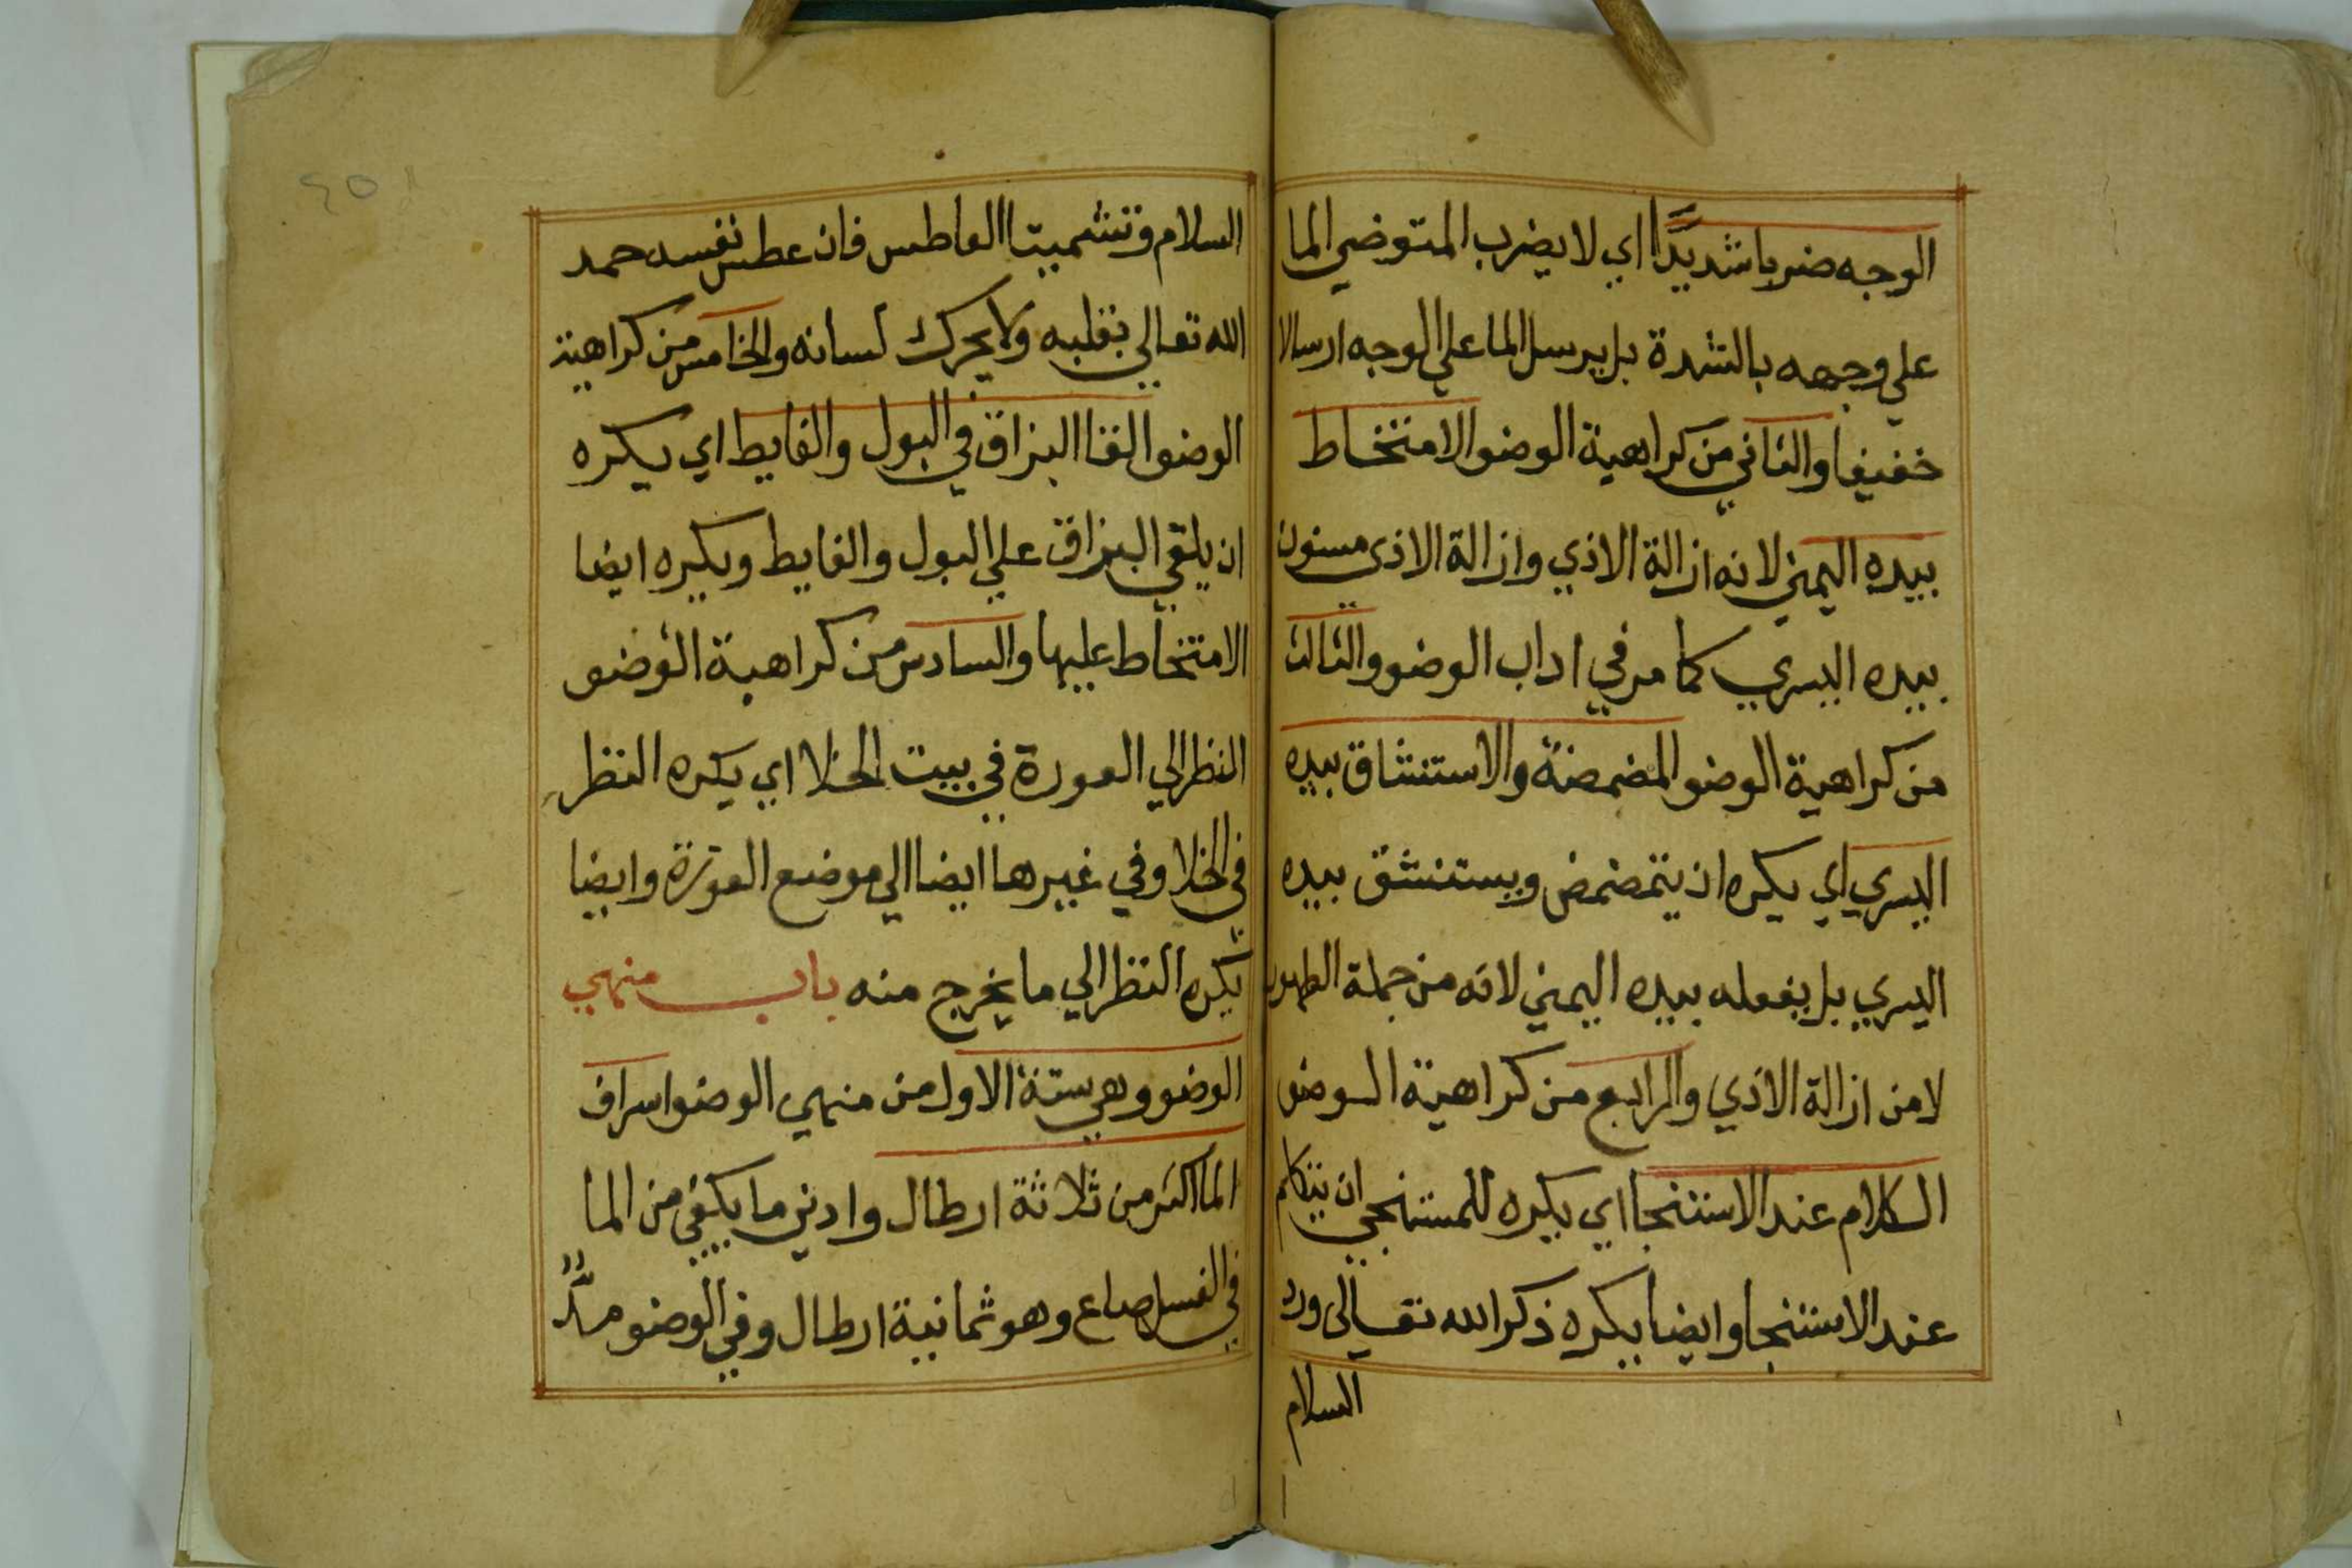 الوجه ضربا شديدًا اي لا يضرب المتوضي الما
علي وجهه بالشدة بل يرسل الما علي الوجه ارسالا
خفيفا والثاني من كراهية الوضو الامتخاط
بيده اليمني لانه ازالة الاذي وازالة الاذى مسنون
بيده اليسري كما مر في اداب الوضو والثالث
من كراهية الوضو المضمضة والاستنشاق بيده
اليسري اي يكره ان يتمضمض ويستنشق بيده
اليسري بل يفعله بيده اليمني لانه من جملة الطهور
لا من ازالة الاذي والرابع من كراهية الوضو
الكلام عند الاستنجا اي يكره للمستنجي ان يتكلم
عند الاستنجا وايضا يكره ذكر الله تعالى ورد
السلام
السلام وتشميت االعاطس فان عطس نفسه حمد
الله تعالي بقلبه ولا يحرك لسانه والخامس من كراهية
الوضو القا البزاق في البول والغايط اي يكره
ان يلقي البزاق علي البول والغايط ويكره ايضا
الامتخاط عليها والسادس من كراهية الوضو
النظر الي العورة في بيت الخلا اي يكره النظر
في الخلا وفي غيرها ايضا الي موضع العورة وايضا
يكره النظر الي ما يخرج منه باب منهي
الوضو وهي ستة الاول من منهي الوضو اسراف
الما اكثر من ثلاثة ارطال وادني ما يكفي من الما
في الغسل صاع وهو ثمانية ارطال وفي الوضو مدٌّ
٤٥